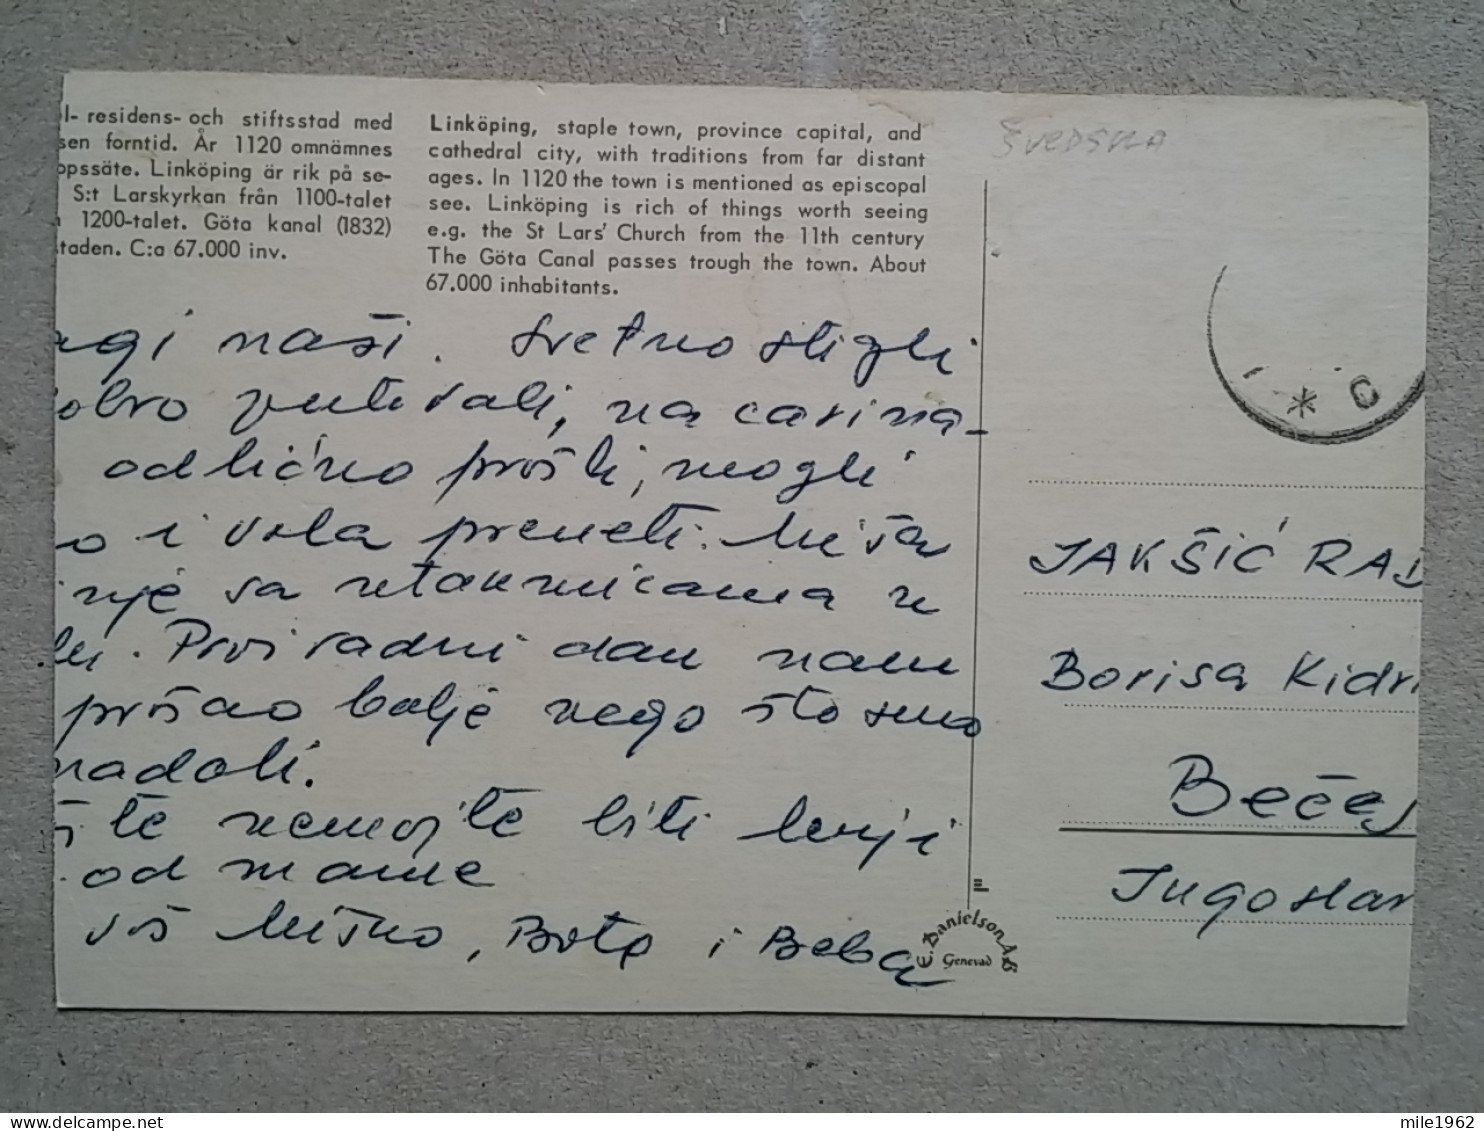 l- residens- och stiftsstad med
sen forntid. År 1120 omnämnes
opssäte. Linköping är rik på se-
S:t Larskyrkan från 1100-talet
1200-talet. Göta kanal (1832)
taden. C:a 67.000 inv.
Linköping, staple town, province capital, and
cathedral city, with traditions from far distant
ages. In 1120 the town is mentioned as episcopal
see. Linköping is rich of things worth seeing
e.g. the St Lars' Church from the 11th century
The Göta Canal passes trough the town. About
67.000 inhabitants.
ŠVEDSKA
agi naši. Sretno stigli
obro putovali, na carina-
odlično prošli, mogli
o i vola preneti. Miša
nje sa utakmicama u
Prvi radni dan nam
prošao bolje nego što smo
nadali.
šte nemojte biti lenji
od mame
vaš Miško, i Beba
JAKŠIĆ RAD
Borisa Kidri
Bečej
Jugoslav
E. Danielson A.B
Genevad
mile1962